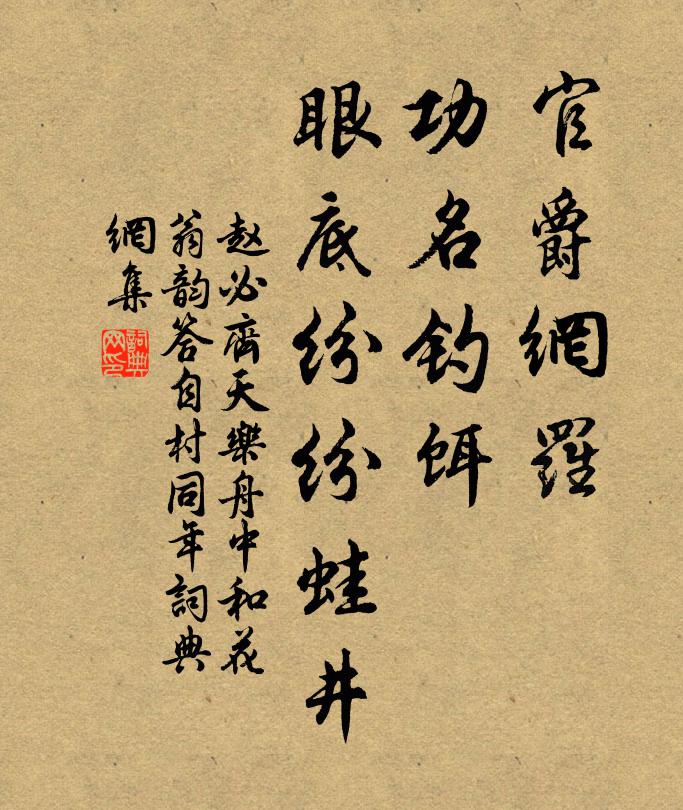 官爵網羅
功名钓餌
眼底纷纷蛙井
赵必齊天樂舟中和花
翁韵答自村同年詞典
網集
詞典网印